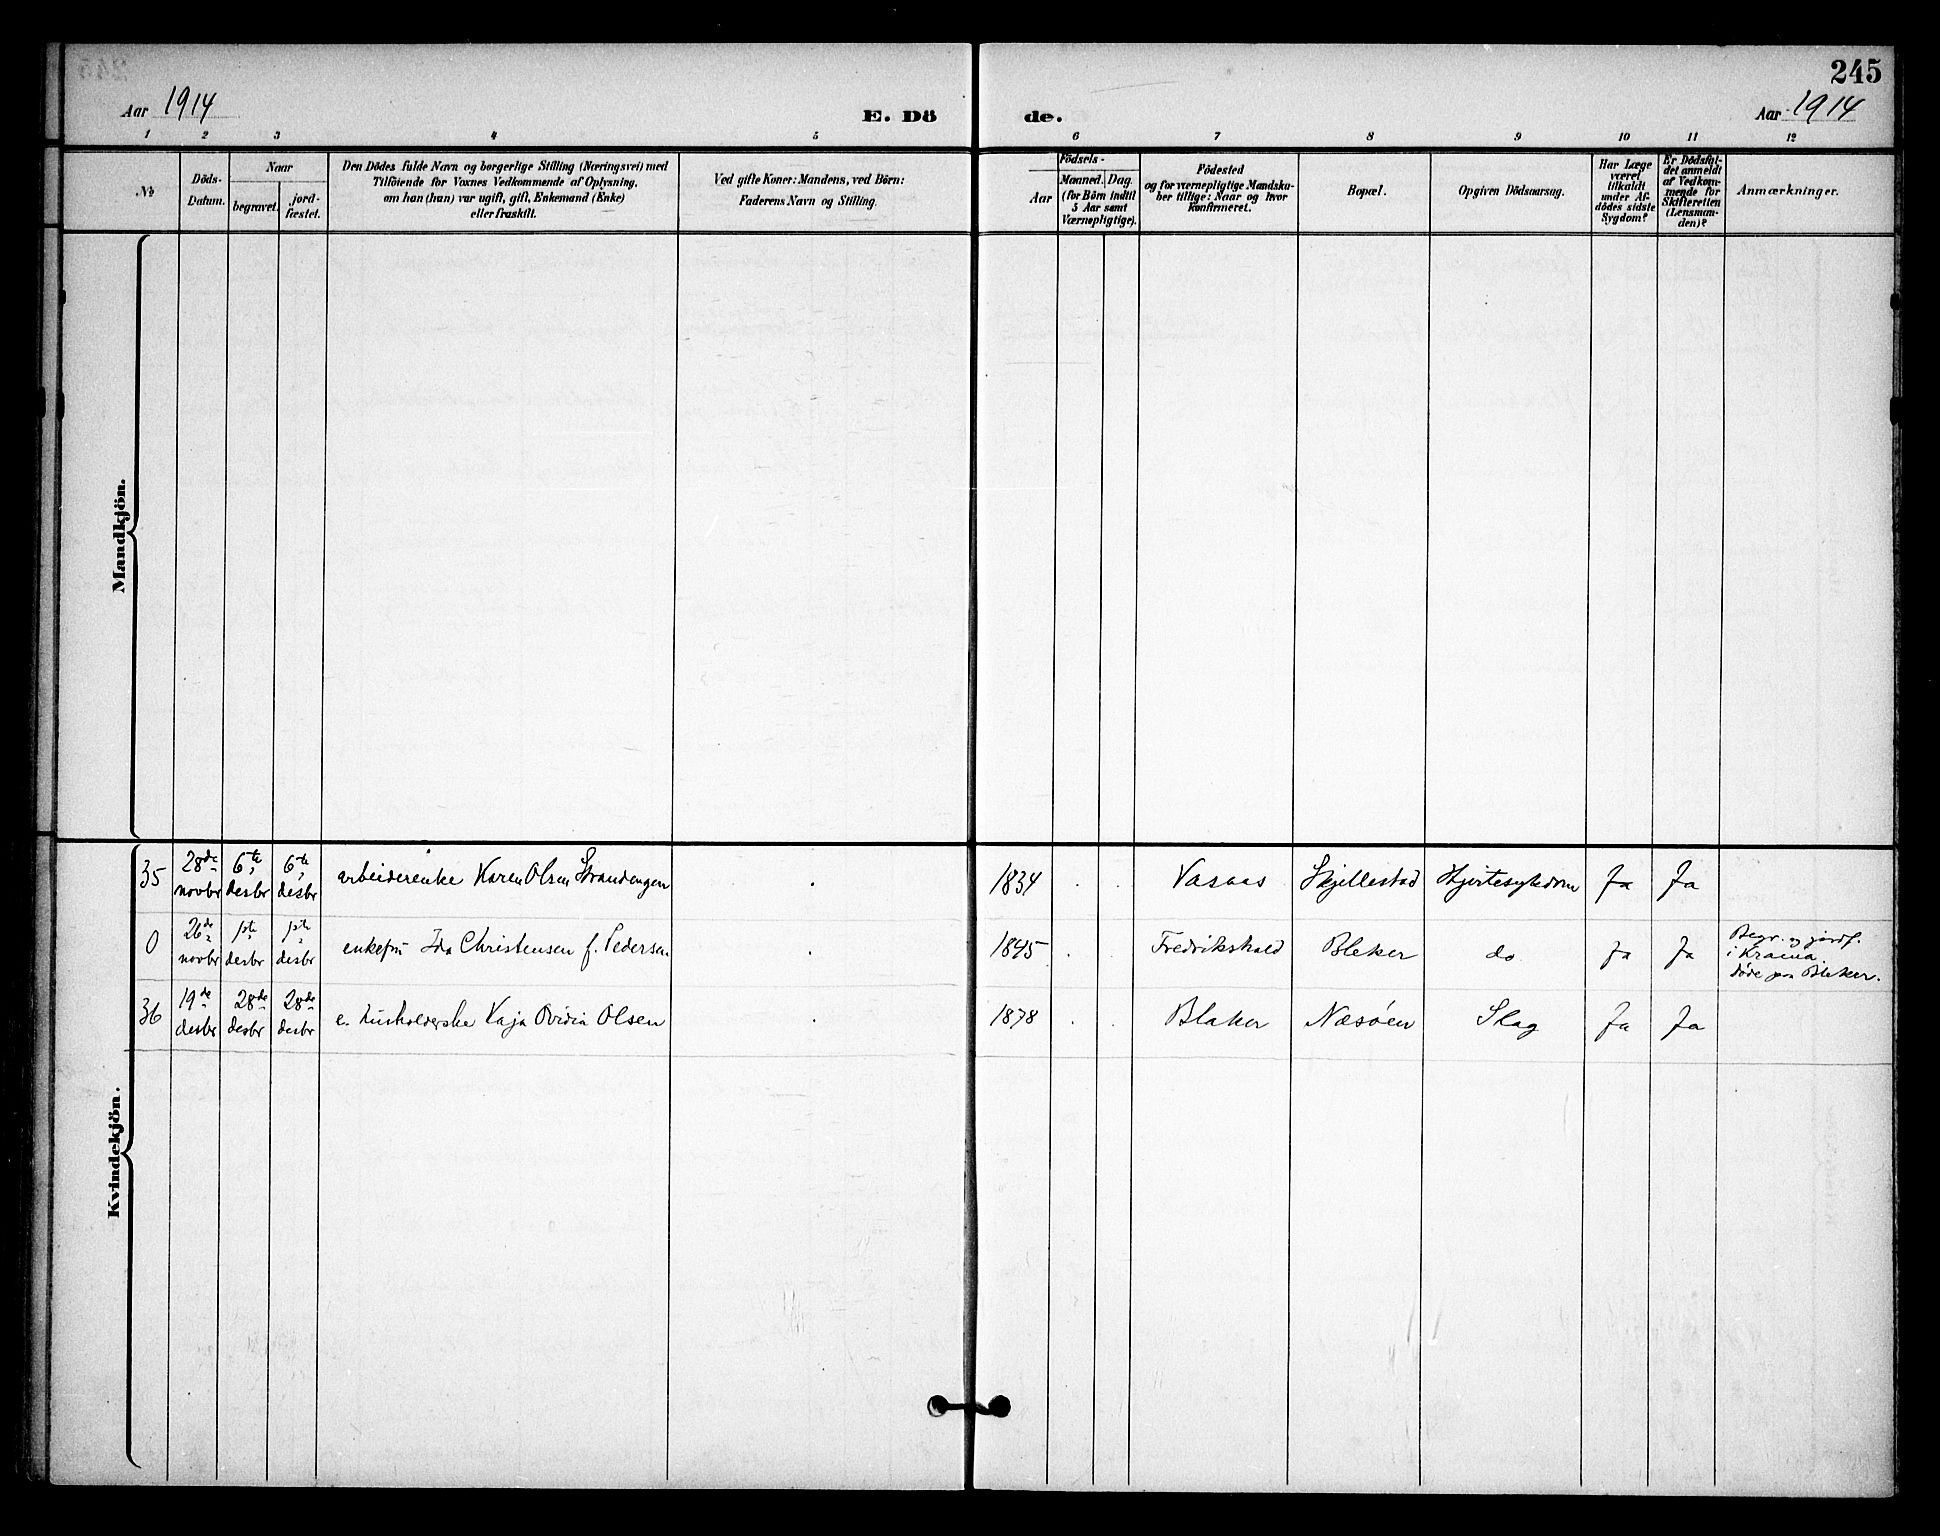 245
Aar 1914
E. Dö de.
Aar 1914
1 2 3 4 5 6 7 8 9 10 11 12
No
Döds-
Datum.
Naar
begravet.
jord-
fæstet.
Den Dödes fulde Navn og borgerlige Stilling (Næringsvei) med
Tilföiende for Voxnes Vedkommende af Oplysning,
om han (hun) var ugift, gift, Enkemand (Enke)
eller fraskilt.
Ved gifte Koner: Mandens, ved Börn:
Faderens Navn og Stilling.
Födsels-
Aar
Maaned. Dag.
(for Börn indtil
5 Aar samt
Værnepligtige).
Födested
og for værnepligtige Mandska-
ber tillige: Naar og hvor
konfirmeret.
Bopæl.
Opgiven Dödsaarsag.
Har Læge
været
tilkaldt
under Af-
dödes sidste
Sygdom?
Er Dödsfal-
det anmeldt
af Vedkom-
mende for
Skifteretten
(Lensman-
den)?
Anmærkninger.
Mandkjön.
Kvindekjön.
35 28de novbr 6te desbr 6te desbr arbeiderenke Karen Olsen Strandengen 1834 Vasaas Skjellestad Hjertesykdom Ja Ja
0 26de novbr 1ste desbr 1ste desbr enkefru Ida Christensen f. Pedersen 1845 Fredrikshald Bleker do Ja Ja
Begr. og jordf.
i Kra
døde paa Bleker.
36 19de desbr 28de desbr 28de desbr e. husholderske Kaja Ovidia Olsen 1878 Blaker Næsöen Slag Ja Ja